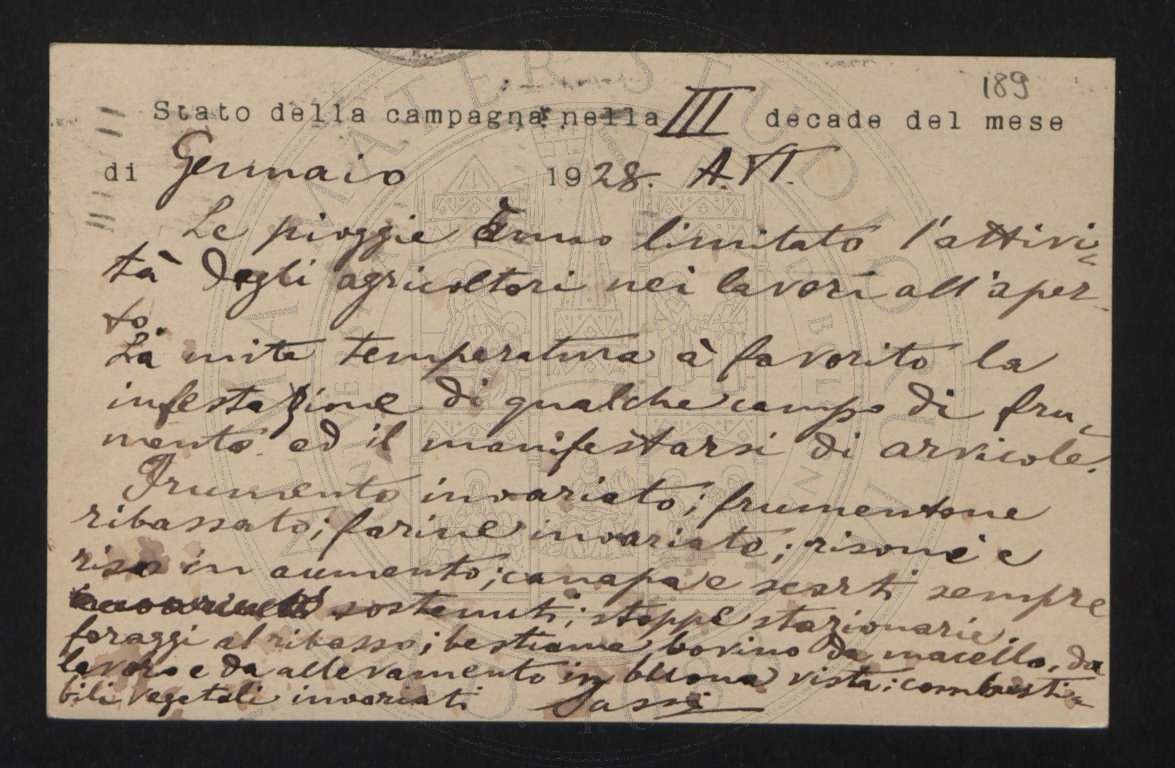 189
Stato della campagna nella III decade del mese
di Gennaio 1928. A. VI.
Le pioggie ànno limitato l'attivi=
tà degli agricoltori nei lavori all'aper-
to.
La mite temperatura à favorito la
infestazione di qualche campo di fru-
mento ed il manifestarsi di arvicole.
Frumento invariato; frumentone
ribassato; farine invariate; risone e
riso in aumento; canapa e scarti sempre
sostenuti; stoppe stazionarie.
foraggi al ribasso; bestiame bovino da macello, da
lavoro e da allevamento in buona vista; combusti=
bili vegetali invariati Sassi